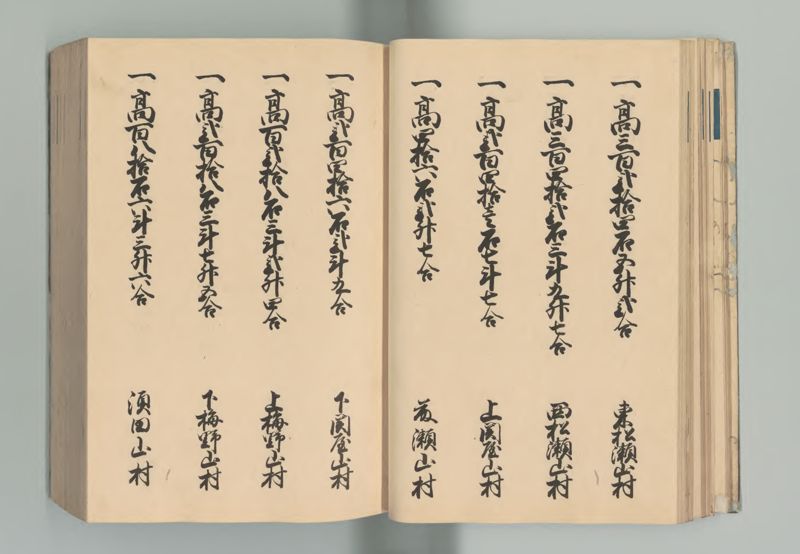 一 高三百弐拾四石五升弐合 東松瀬山村
一 高三百四拾弐石三斗九升七合 西松瀬山村
一 高弐百四拾三石七斗七合 上関屋山村
一 高四拾六石弐升七合 瀬山村
一 高弐百四拾六石弐斗九合 下関屋山村
一 高百弐拾八石三斗弐升四合 上梅野山村
一 高弐百拾八石三斗七升五合 下梅野山村
一 高百八拾石六斗三升六合 須田山村